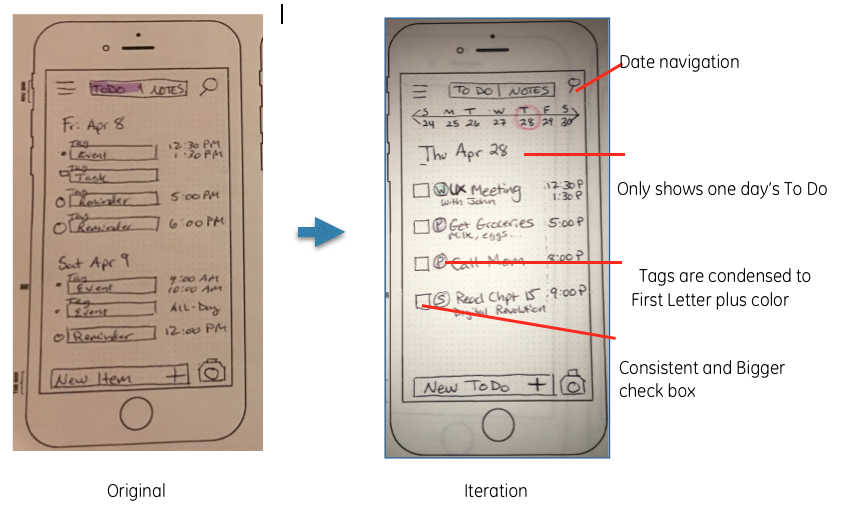 TODO NOTES
Fri Apr 8
Tag
Event
12:30 PM
1:30 PM
Tag
Task
Tag
Reminder
5:00 PM
Tag
Reminder
6:00 PM
Sat Apr 9
Tag
Event
9:00 AM
10:00 AM
Tag
Event
All-Day
Reminder
12:00 PM
New Item +
Original
TO DO NOTES
S M T W T F S
24 25 26 27 28 29 30
Thu Apr 28
W UX Meeting
with John
12:30P
1:30P
P Get Groceries
Milk, eggs...
5:00P
P Call Mom
8:00P
S Read Chpt 15
Digital Revolution
9:00P
New ToDo +
Iteration
Date navigation
Only shows one day's To Do
Tags are condensed to
First Letter plus color
Consistent and Bigger
check box